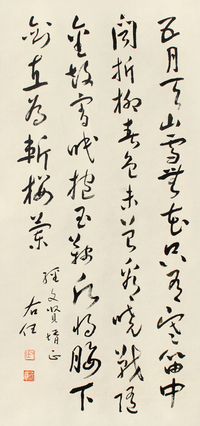 五月天山雪無花只有寒笛中
聞折柳春色未曾看曉戰隨
金鼓宵眠抱玉鞍願將腰下
劍直為斬樓蘭
文賢正
右任